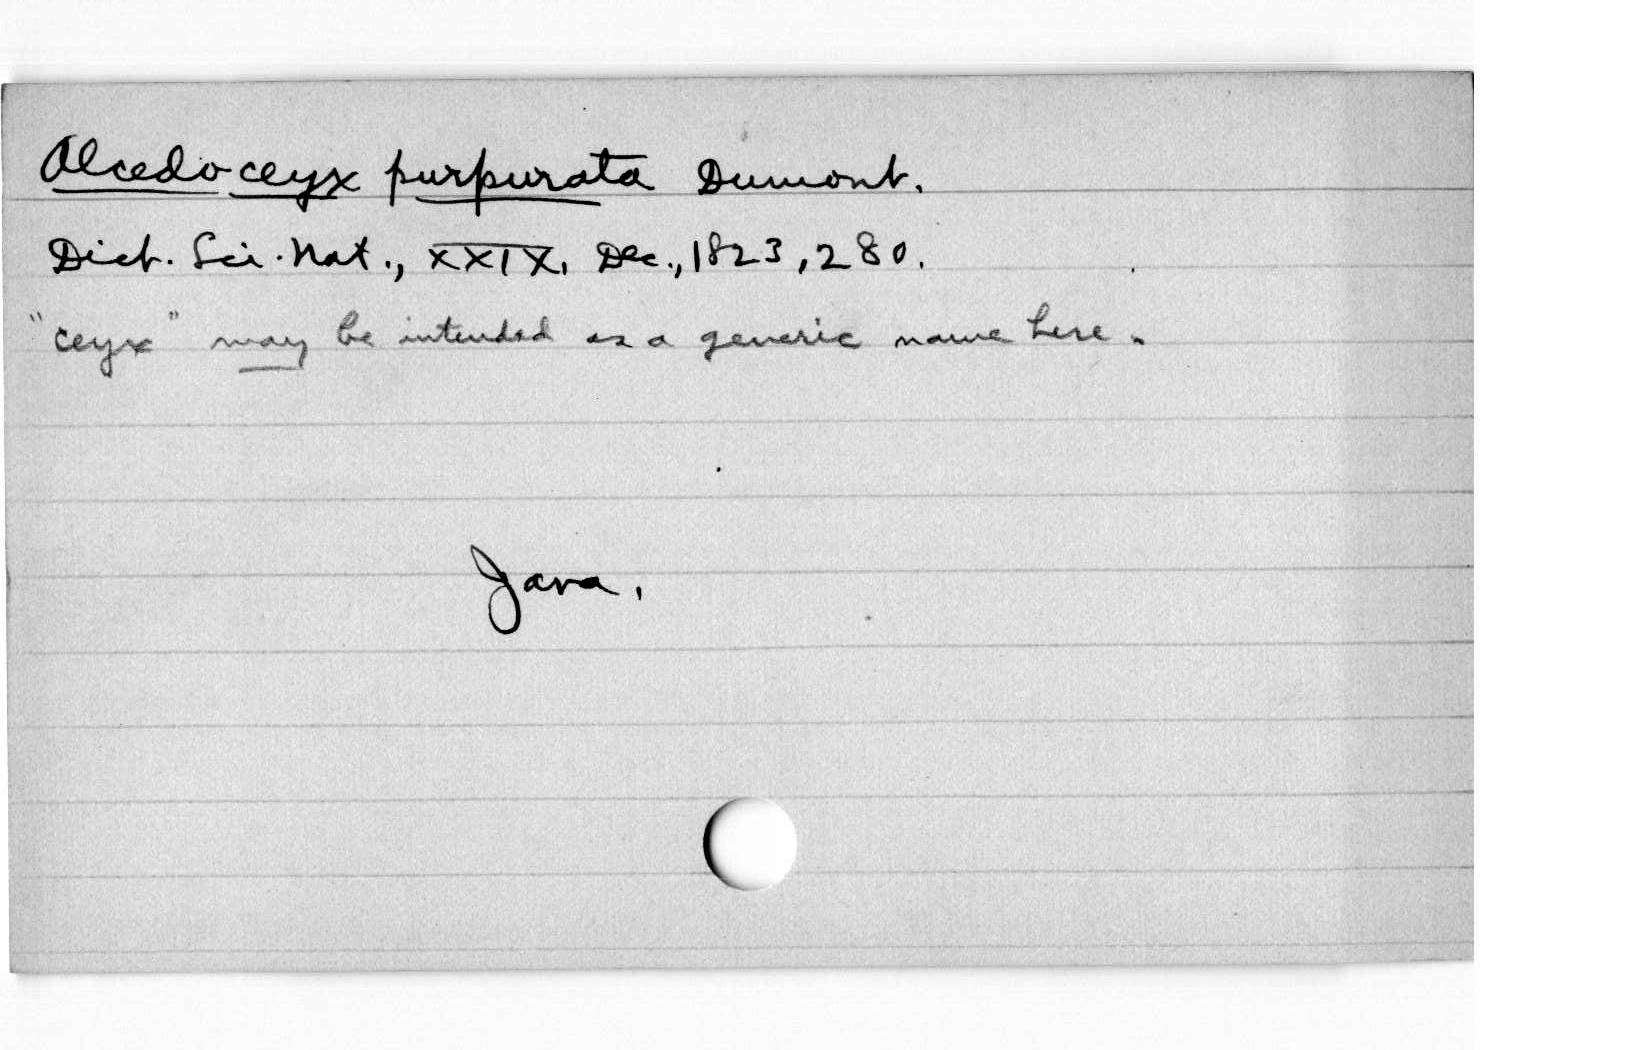 Alcedo ceyx purpurata Dumont.
Dict. Sci. Nat., XXIX, Dec., 1823, 280.
"ceyx" may be intended as a generic name here.
Java.